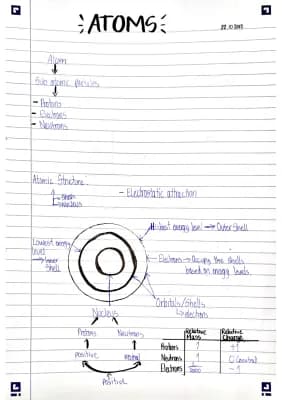 ATOMS
Atom
Sub atomic
- Protons
- Electrons
- Neutrons
Atomic Structure:
Shells
Nucleus
- Electrostatic attraction
Highest energy level → Outer Shell
Lowest energy
level
→ Inner
Shell
Electrons → Occupy the shells
based on energy levels.
Orbitals/Shells
↳ electrons
Nucleus
Protons Neutrons
positive neutral
Positive
Relative Mass Relative Charge
Protons 1 +1
Neutrons 1 0 (neutral)
Electrons -1